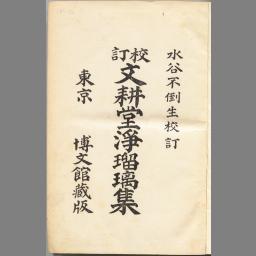 水谷不倒生校訂
校訂文耕堂浄瑠璃集
東京 博文館蔵版